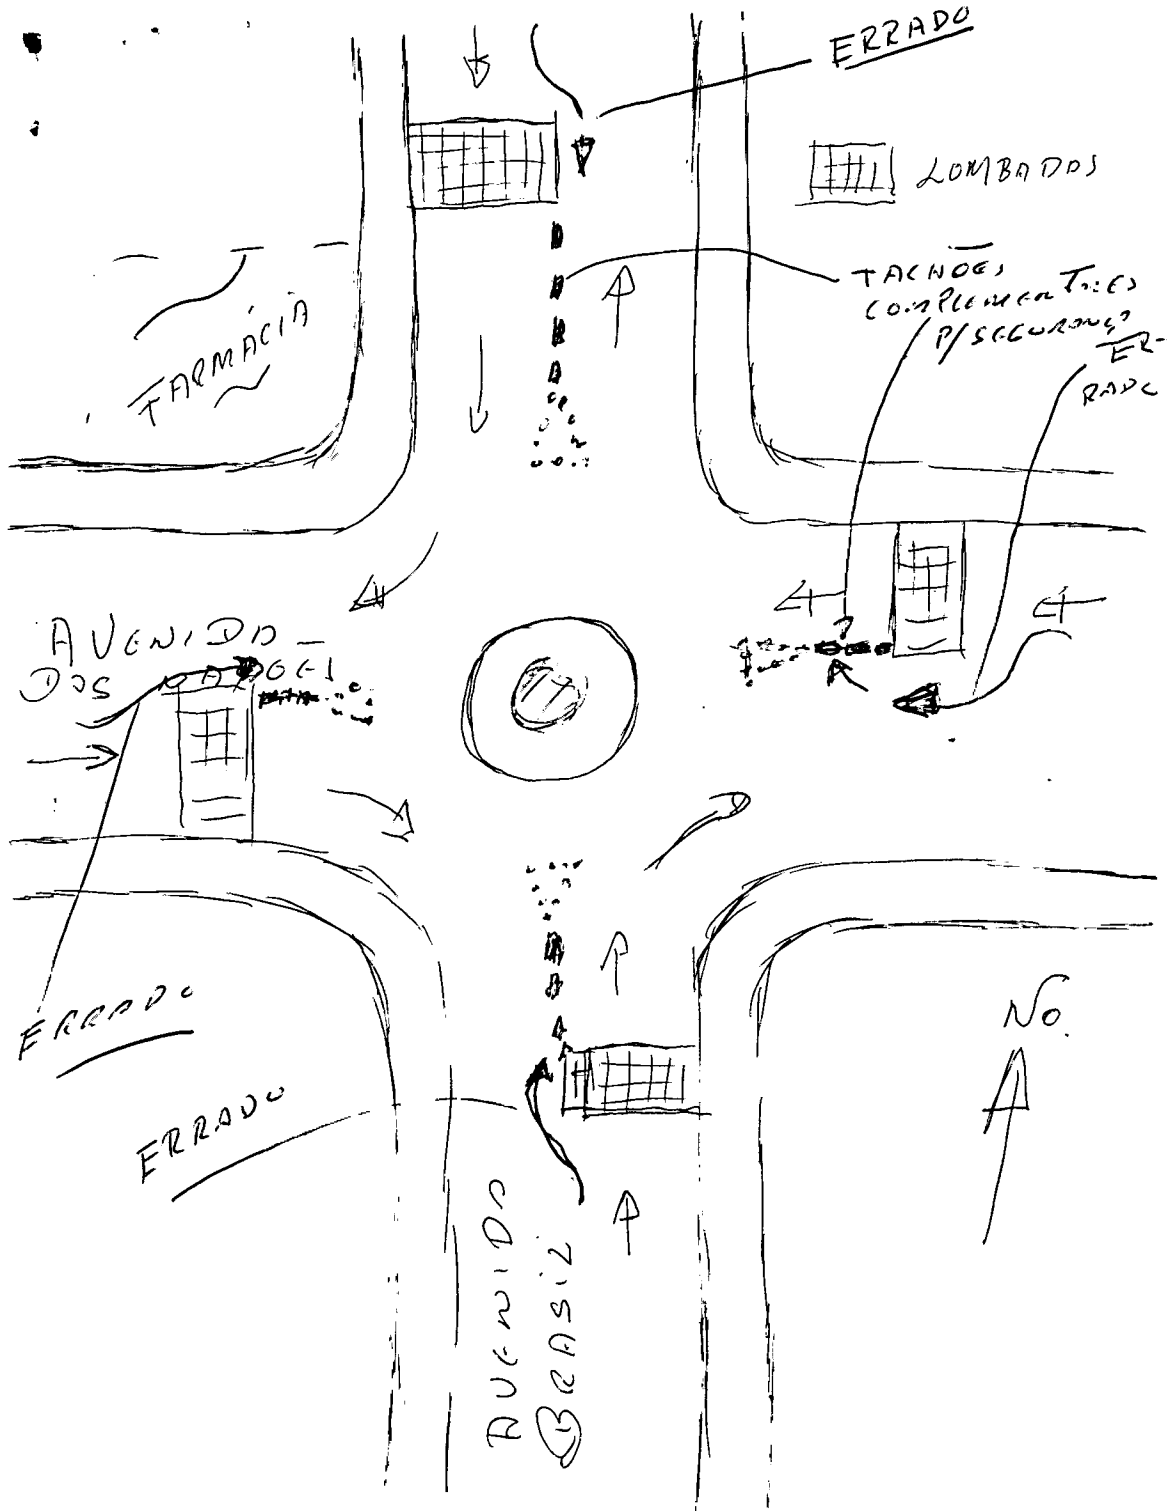 ERRADO
LOMBADAS
TACHÕES
COMPLEMENTARES
P/SEGURANÇA
ER-
RADO
FARMÁCIA
AVENIDA
DAS NAÇÕES
ERRADO
ERRADO
No.
AVENIDA
BRASIL